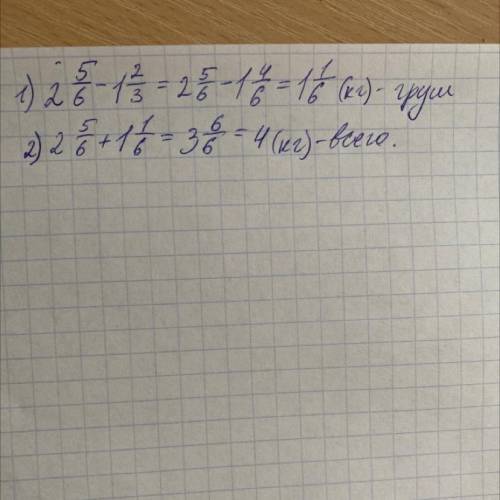 1) 2 5/6 - 1 2/3 = 2 5/6 - 1 4/6 = 1 1/6 (кг) - груш
2) 2 5/6 + 1 1/6 = 3 6/6 = 4 (кг) - всего.